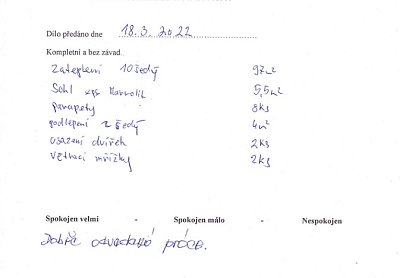 Dílo předáno dne 18.3.2022
Kompletní a bez závad.
zateplení 10 šedý 97m²
Sokl xps Marmolit 5,5m²
parapety 8ks
podlepení 2 šedý 4m²
osazení dvířek 2ks
větrací mřížky 2ks
Spokojen velmi - Spokojen málo - Nespokojen
Dobře odvedená práce.